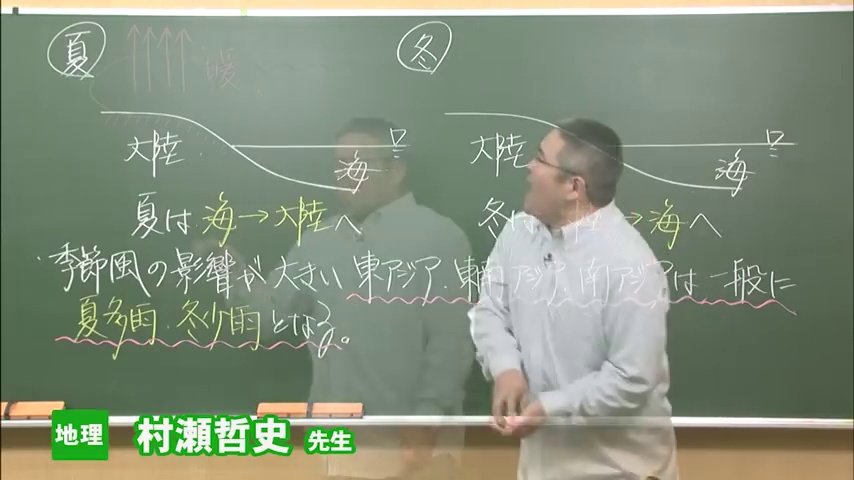 夏
冬
暖
大陸
海
大陸
海
夏は 海→大陸へ
冬は 陸→海へ
季節風の影響が大きい 東アジア.東南アジア.南アジアは一般に
夏多雨.冬少雨となる。
地理 村瀬哲史 先生